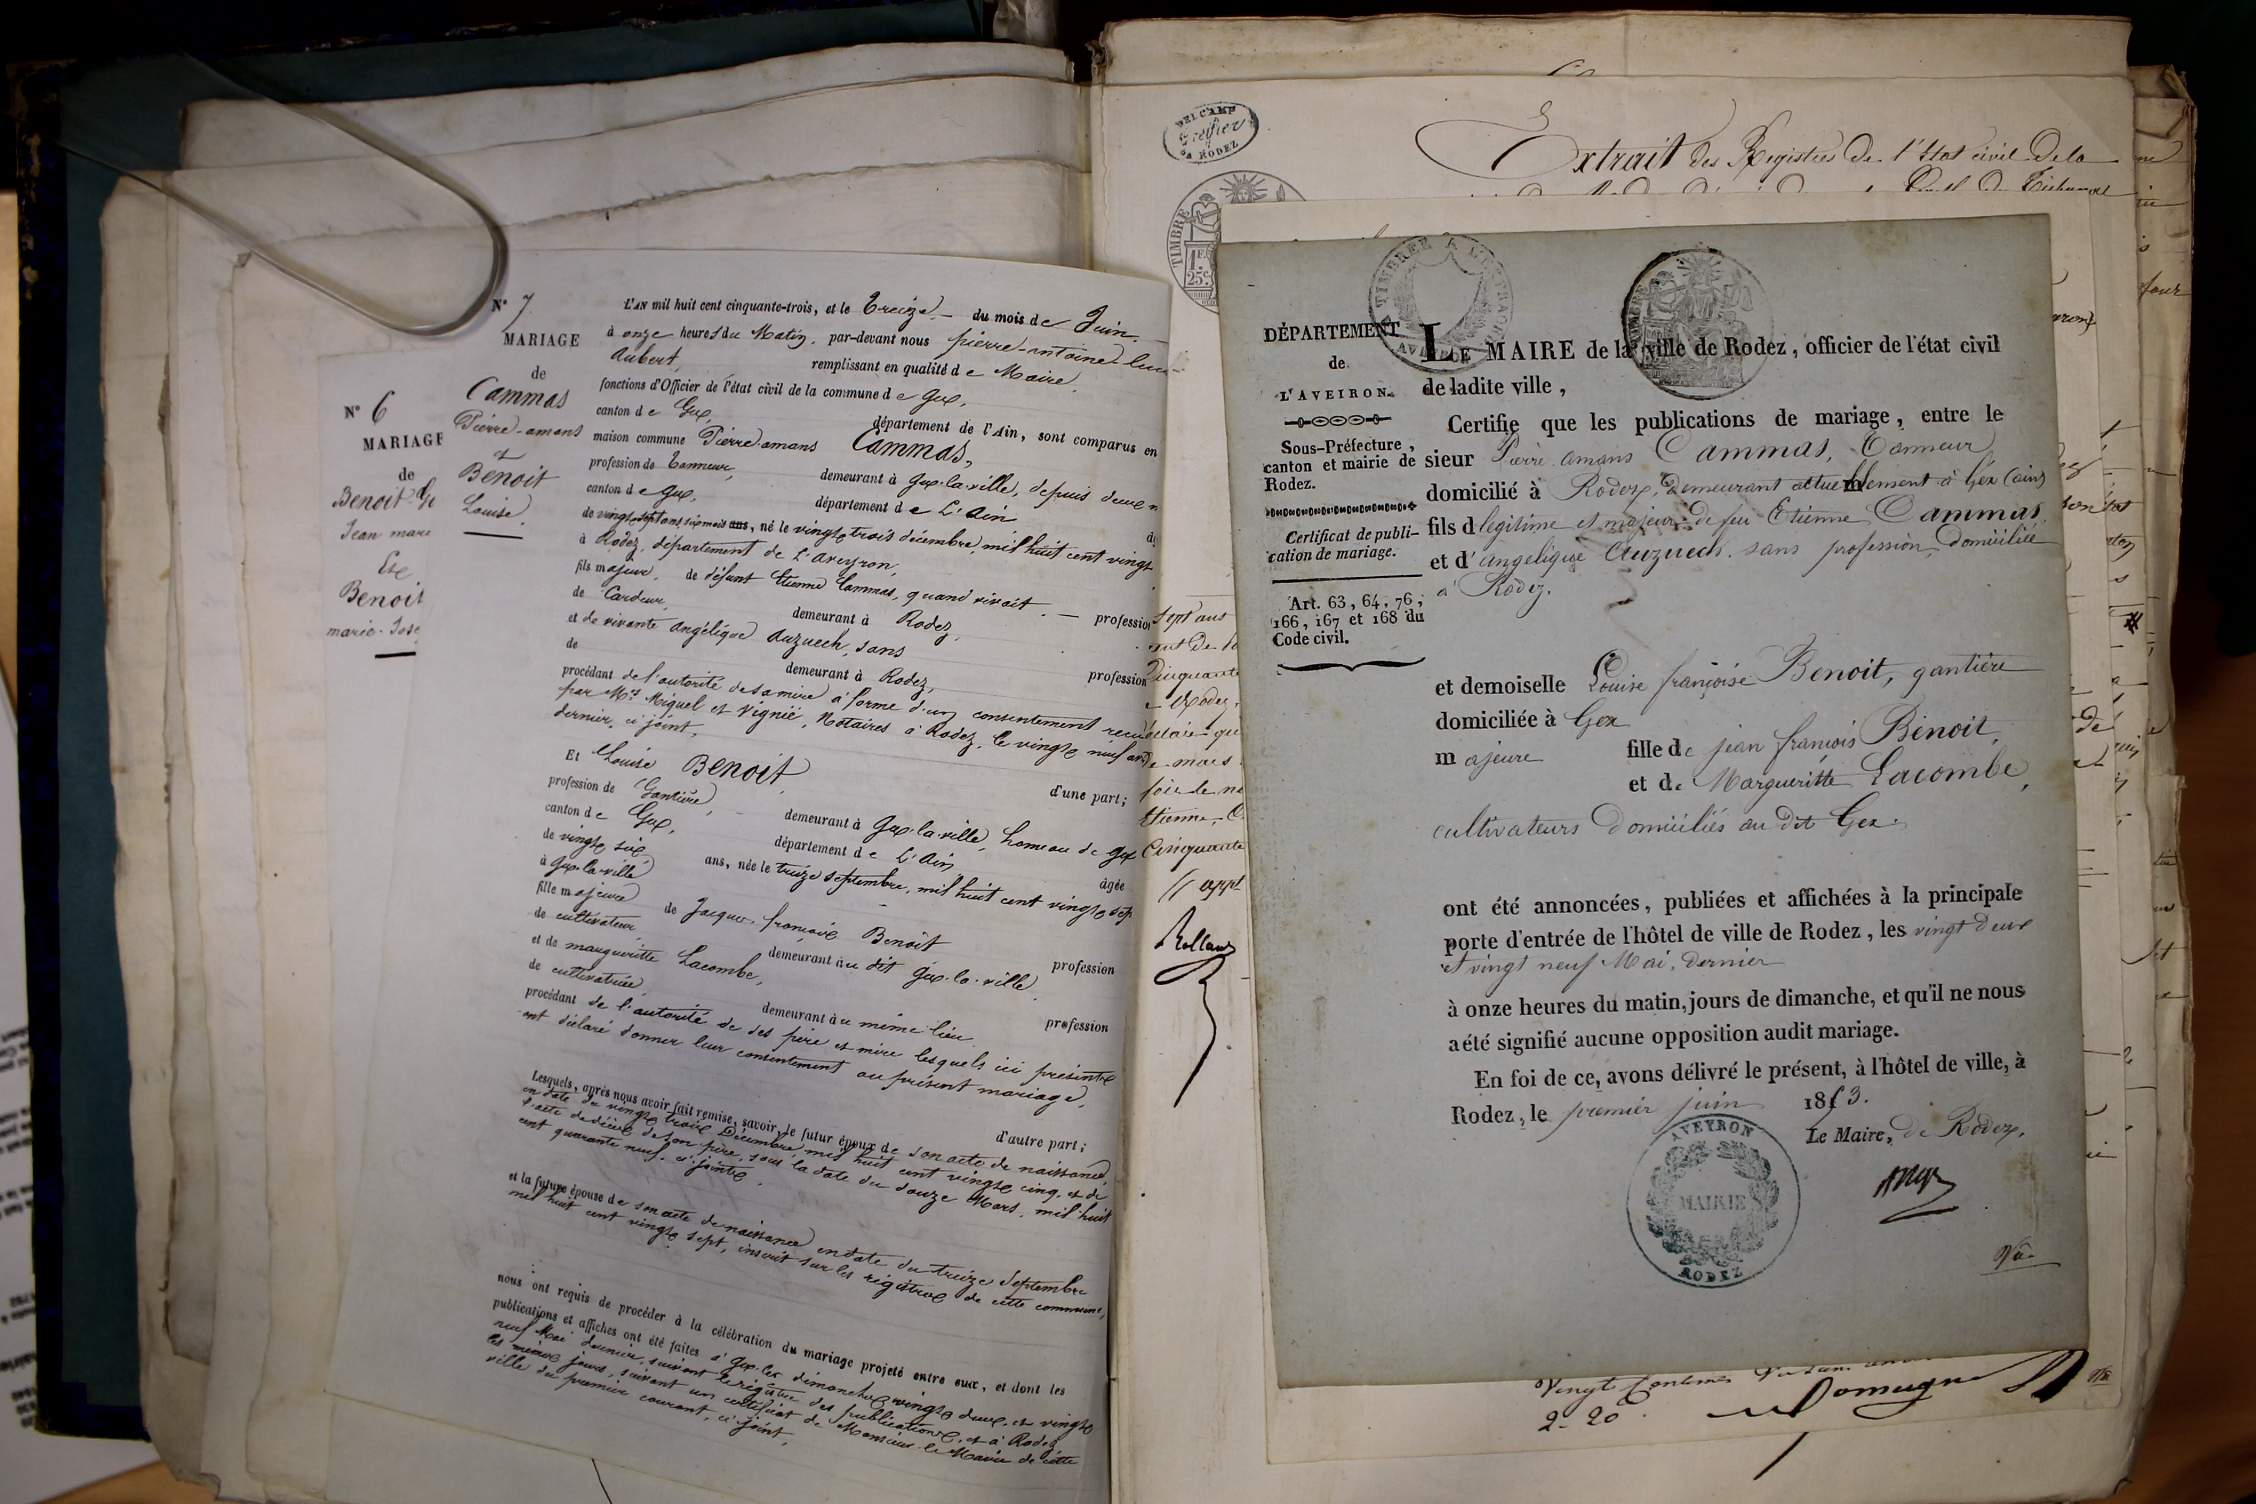 N° 6
MARIAGE
de
Benoit
Jean marie
Et
Benoit
N° 7
MARIAGE
de
Cammas
Pierre-amans
et
Benoit
Louise
L'AN mil huit cent cinquante-trois, et le treize du mois de Juin
à onze heures du Matin, par-devant nous pierre-antoine
Aubert, remplissant en qualité de Maire
fonctions d'Officier de l'état civil de la commune de Gex,
canton de Gex, département de l'Ain, sont comparus en
maison commune Pierre-amans Cammas,
profession de Tanneur, demeurant à Gex-la-ville, depuis deux
canton de Gex, département de L'Ain
de vingt-sept ans six mois ans, né le vingt trois décembre, mil huit cent vingt
à Rodez, département de l'Aveyron,
fils majeur, de défunt Etienne Cammas, quand vivait profession
de Cardeur, demeurant à Rodez,
et de vivante Angélique Auzuech, sans profession
de demeurant à Rodez,
procédant de l'autorité de sa mère à forme d'un consentement reçu
par Mes Miguel et Vignié, Notaires à Rodez, le vingt neuf
dernier, ci joint, d'une part;
Et Louise Benoit
profession de Gantière, demeurant à Gex-la-ville, hameau de Gex
canton de Gex, département de L'Ain âgée
de vingt six ans, née le treize septembre, mil huit cent vingt sept
à Gex-la-ville
fille majeure de Jacques françois Benoît profession
de cultivateur demeurant au dit Gex-la-ville
et de marguerite Lacombe, profession
de cultivatrice, demeurant au même lieu
procédant de l'autorité de ses père et mère lesquels ici présents
ont déclaré donner leur consentement au présent mariage,
d'autre part;
Lesquels, après nous avoir fait remise, savoir, le futur époux de son acte de naissance,
en date du vingt trois Décembre, mil huit cent vingt cinq, et de
l'acte de décès de son père, sous la date du douze Mars, mil huit
cent quarante neuf, ci-joints
et la future épouse de son acte de naissance en date du treize septembre
mil huit cent vingt sept, inscrit sur les registres de cette commune,
nous ont requis de procéder à la célébration du mariage projeté entre eux, et dont les
publications et affiches ont été faites à Gex les dimanches vingt deux, et vingt
neuf Mai dernier, suivant le registre des publications, et à Rodez
les mêmes jours, suivant un certificat de Monsieur le Maire de cette
ville du premier courant, ci joint,
DELCAMP
Greffier
à RODEZ
Extrait des Registres de l'Etat civil de la
TIMBRE
1 F.
25 c.
TIMBRÉ A L'EXTRAORD
AVEYRON
DÉPARTEMENT
de
L'AVEIRON.
Sous-Préfecture,
canton et mairie de
Rodez.
Certificat de publi-
cation de mariage.
Art. 63, 64, 76,
166, 167 et 168 du
Code civil.
LE MAIRE de la ville de Rodez, officier de l'état civil
de ladite ville,
Certifie que les publications de mariage, entre le
sieur Pierre amans Cammas, Tanneur
domicilié à Rodez, demeurant actuellement à Gex (ain)
fils légitime et majeur de feu Etienne Cammas
et d'angélique Auzuech sans profession, domiciliée
à Rodez.
et demoiselle Louise françoise Benoit, gantière
domiciliée à Gex
majeure fille de jean françois Benoit,
et de Margueritte Lacombe,
cultivateurs domiciliés au dit Gex.
ont été annoncées, publiées et affichées à la principale
porte d'entrée de l'hôtel de ville de Rodez, les vingt deux
et vingt neuf Mai, dernier
à onze heures du matin, jours de dimanche, et qu'il ne nous
a été signifié aucune opposition audit mariage.
En foi de ce, avons délivré le présent, à l'hôtel de ville, à
Rodez, le premier juin 1853.
Le Maire, de Rodez,
AVEYRON
MAIRIE
RODEZ
2-20